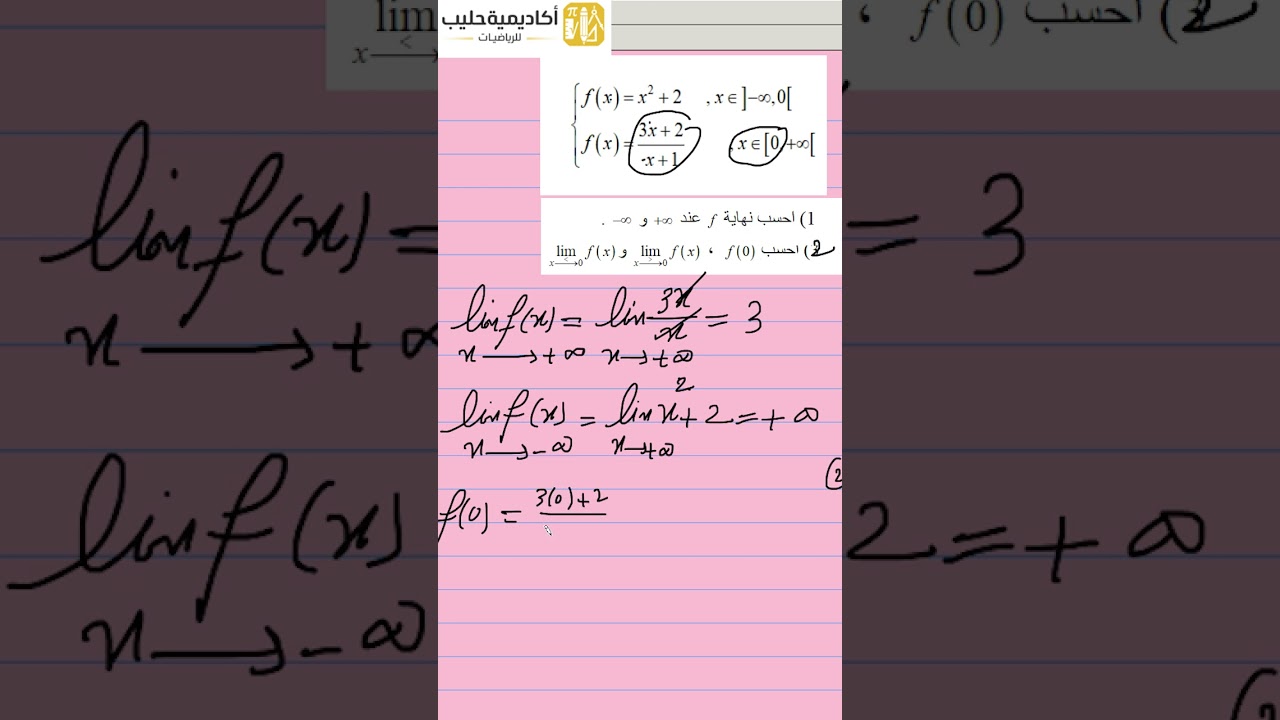 أكاديمية حليب
للرياضيات
f(x) = x² + 2 , x ∈ ]−∞,0[
f(x) = (3x + 2)/(x + 1) , x ∈ [0, +∞[
1) احسب نهاية f عند +∞ و −∞ .
2) احسب f(0) ، lim f(x) و lim f(x)
x ⟶ 0 x ⟶ 0
lim f(x) = lim 3x/x = 3
x ⟶ +∞ x ⟶ +∞
lim f(x) = lim x² + 2 = +∞
x ⟶ −∞ x ⟶ +∞
2
f(0) = 3(0) + 2